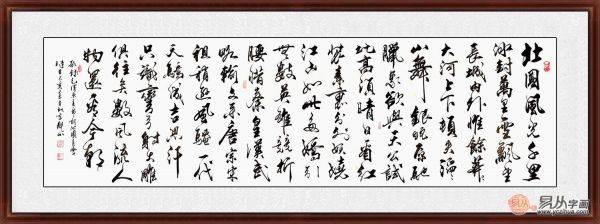 北國風光千里
冰封萬里雪飄望
長城内外惟餘莽莽
大河上下頓失滔滔
山舞銀蛇原馳
蠟象欲與天公試
比高須晴日看紅
裝素裹分外妖嬈
江山如此多嬌引
無數英雄競折
腰惜秦皇漢武
略輸文采唐宗宋
祖稍遜風騷一代
天驕成吉思汗
只識彎弓射大雕
俱往矣數風流人
物還看今朝
易从字画